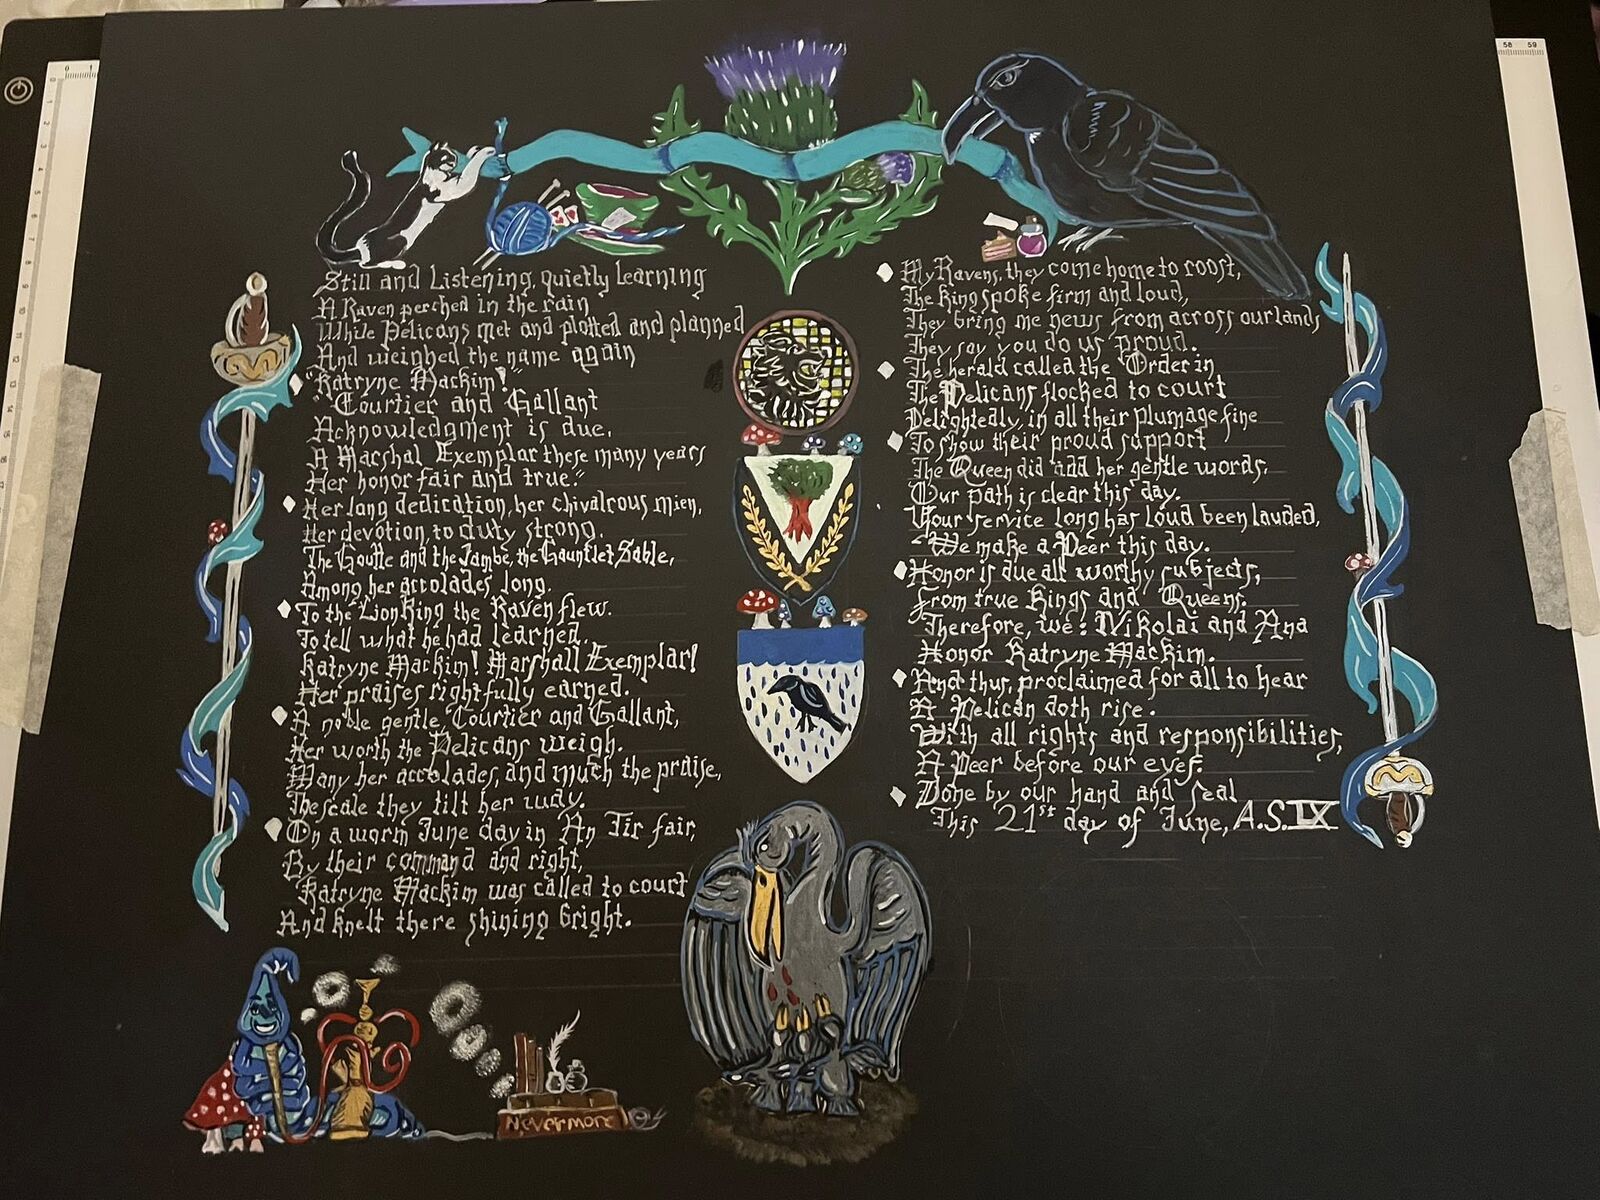 Still and Listening, quietly learning
A Raven perched in the rain
While Pelicans met and plotted and planned
And weighed the name again
"Katryne Mackim!
"Courtier and Gallant
Acknowledgment is due,
A Marshal Exemplar these many years
Her honor fair and true."
Her long dedication, her chivalrous mien,
Her devotion to duty strong.
The Goutte and the Jambe, the Gauntlet Sable,
Among her accolades long.
To the Lion King the Raven flew.
To tell what he had learned.
Katryne Mackim! Marshall Exemplar!
Her praises rightfully earned.
A noble gentle, Courtier and Gallant,
Her worth the Pelicans weigh.
Many her accolades, and much the praise,
The scale they tilt her way.
On a warm June day in An Tir fair,
By their command and right,
Katryne Mackim was called to court
And knelt there shining bright.
My Ravens, they come home to roost,
The King spoke firm and loud,
They bring me news from across our lands
They say you do us proud.
The herald called the Order in
The Pelicans flocked to court
Delightedly, in all their plumage fine
To show their proud support
The Queen did add her gentle words.
Our path is clear this day.
Your service long has loud been lauded,
We make a Peer this day.
Honor is due all worthy subjects,
From true Kings and Queens.
Therefore, we: Nikolai and Ana
Honor Katryne Mackim.
And thus, proclaimed for all to hear
A Pelican doth rise.
With all rights and responsibilities,
A Peer before our eyes.
Done by our hand and seal
This 21st day of June, A.S. IX
Nevermore
58 59